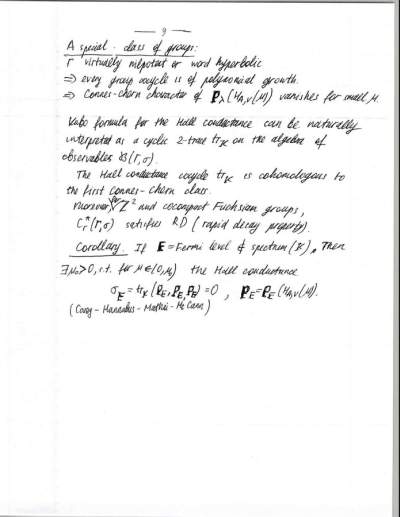 — 9 —
A special class of groups:
Γ virtually nilpotent or word hyperbolic
⇒ every group cocycle is of polynomial growth.
⇒ Connes-Chern character of P_λ(H_{A,V}(μ)) vanishes for small μ.
Kubo formula for the Hall conductance can be naturally
interpreted as a cyclic 2-trace tr_K on the algebra of
observables B(Γ,σ).
The Hall conductance cocycle tr_K is cohomologous to
the first Connes-Chern class.
Moreover, for Z² and cocompact Fuchsian groups,
C_r^*(Γ,σ) satisfies RD (rapid decay property).
Corollary. If E = Fermi level ∉ spectrum (K), Then
∃ μ₀>0, s.t. for μ∈(0,μ₀) the Hall conductance
σ_E = tr_K (P_E, P_E, P_E) = 0 , P_E = P_E (H_{A,V}(μ)).
(Carey-Hannabus-Mathai-McCann)